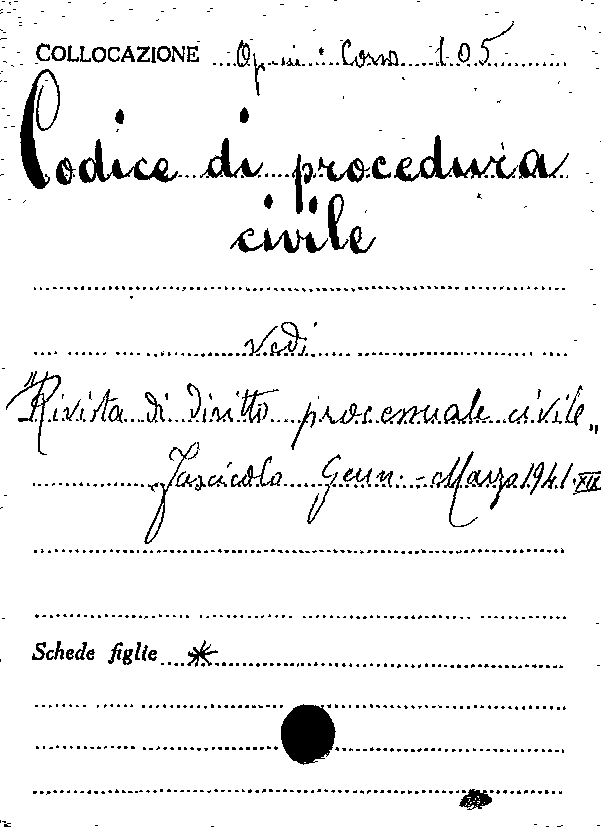 COLLOCAZIONE Op. : Corso 105
Codice di procedura
civile
vedi
"Rivista di Diritto processuale civile„
Fascicolo Genn. - Marzo 1941. XIX
Schede figlie *